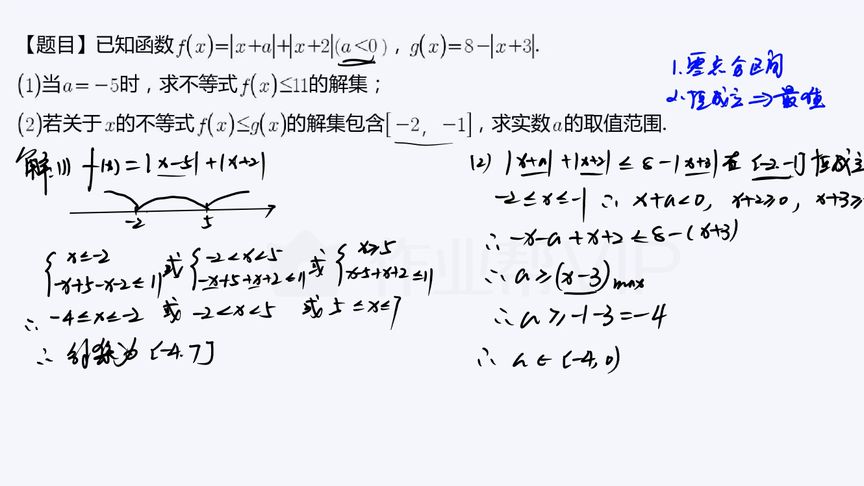 【题目】已知函数f(x)=|x+a|+|x+2|(a<0)，g(x)=8-|x+3|.
(1)当a=-5时，求不等式f(x)≤11的解集；
(2)若关于x的不等式f(x)≤g(x)的解集包含[-2，-1]，求实数a的取值范围.
1.零点分区间
2.恒成立⇒最值
解:(1) f(x)=|x-5|+|x+2|
-2 5
{x≤-2 或 {-2<x<5 或 {x≥5
-x+5-x-2≤11 -x+5+x+2≤11 x-5+x+2≤11
∴ -4≤x≤-2 或 -2<x<5 或 5≤x≤7
∴ 解集为[-4,7]
(2) |x+a|+|x+2|≤8-|x+3|在[-2,-1]恒成立
-2≤x≤-1 ∴ x+a<0, x+2≥0, x+3≥
∴ -x-a+x+2≤8-(x+3)
∴ a≥(x-3)max
∴ a≥-1-3=-4
∴ a∈[-4,0)
作业帮VIP